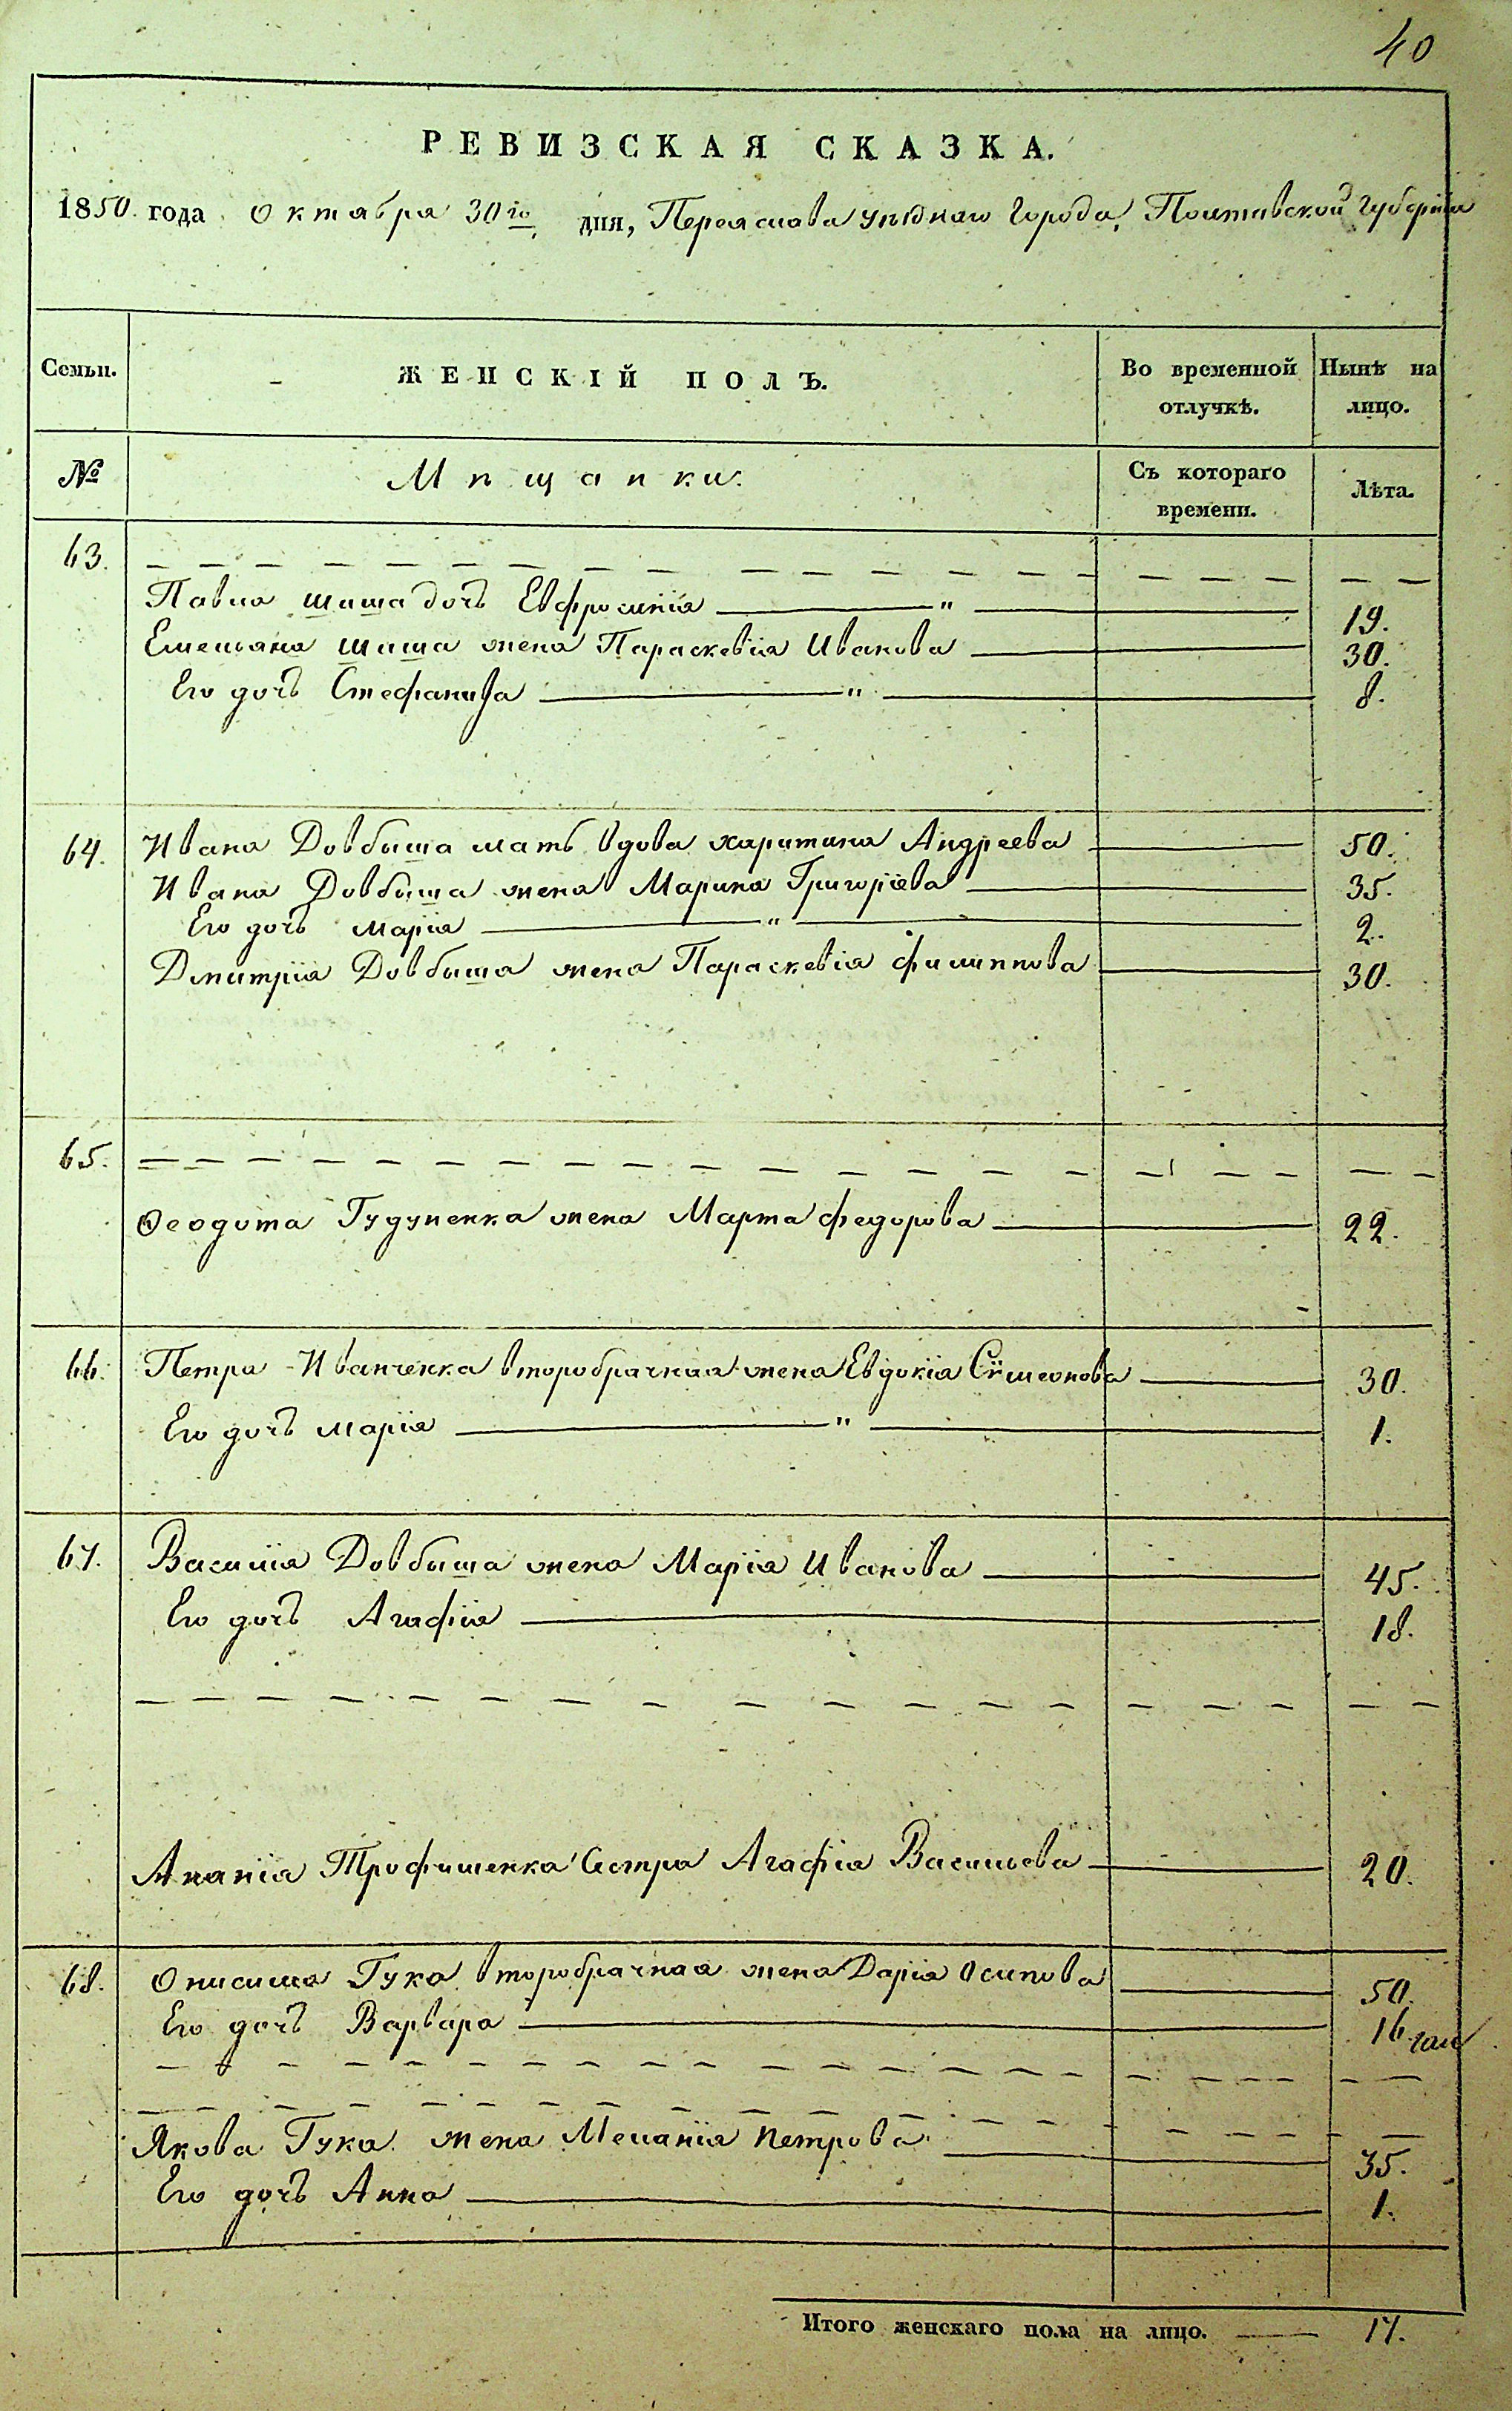 40
РЕВИЗСКАЯ СКАЗКА.
1850. года Октября 30го дня, Переяслова уѣзднаго Города, Полтавской Губерніи
Семьи.
ЖЕНСКІЙ ПОЛЪ.
Во временной отлучкѣ.
Нынѣ на лицо.
№
Мѣщанки.
Съ котораго времени.
Лѣта.
63.
Павла Шиша дочь Евфросинія " 19.
Емельяна Шиша жена Параскевія Иванова 30.
Его дочь Стефанида " 8.
64. Ивана Довбыша мать вдова Харитина Андреева 50.
Ивана Довбыша жена Марина Григоріева 35.
Его дочь Марія " 2.
Дмитрія Довбыша жена Параскевія Филиппова 30.
65.
Феодота Гудименка жена Марта Федорова 22.
66. Петра Иванченка второбрачная жена Евдокія Сѵмеонова 30.
Его дочь Марія " 1.
67. Василія Довбыша жена Марія Иванова 45.
Его дочь Агафія 18.
Ананія Трофименка Сестра Агафія Васильева 20.
68. Онисима Гука второбрачная жена Дарія Осипова 50.
Его дочь Варвара 16
Якова Гука жена Меланія Петрова 35.
Его дочь Анна 1.
Итого женскаго пола на лицо. 17.